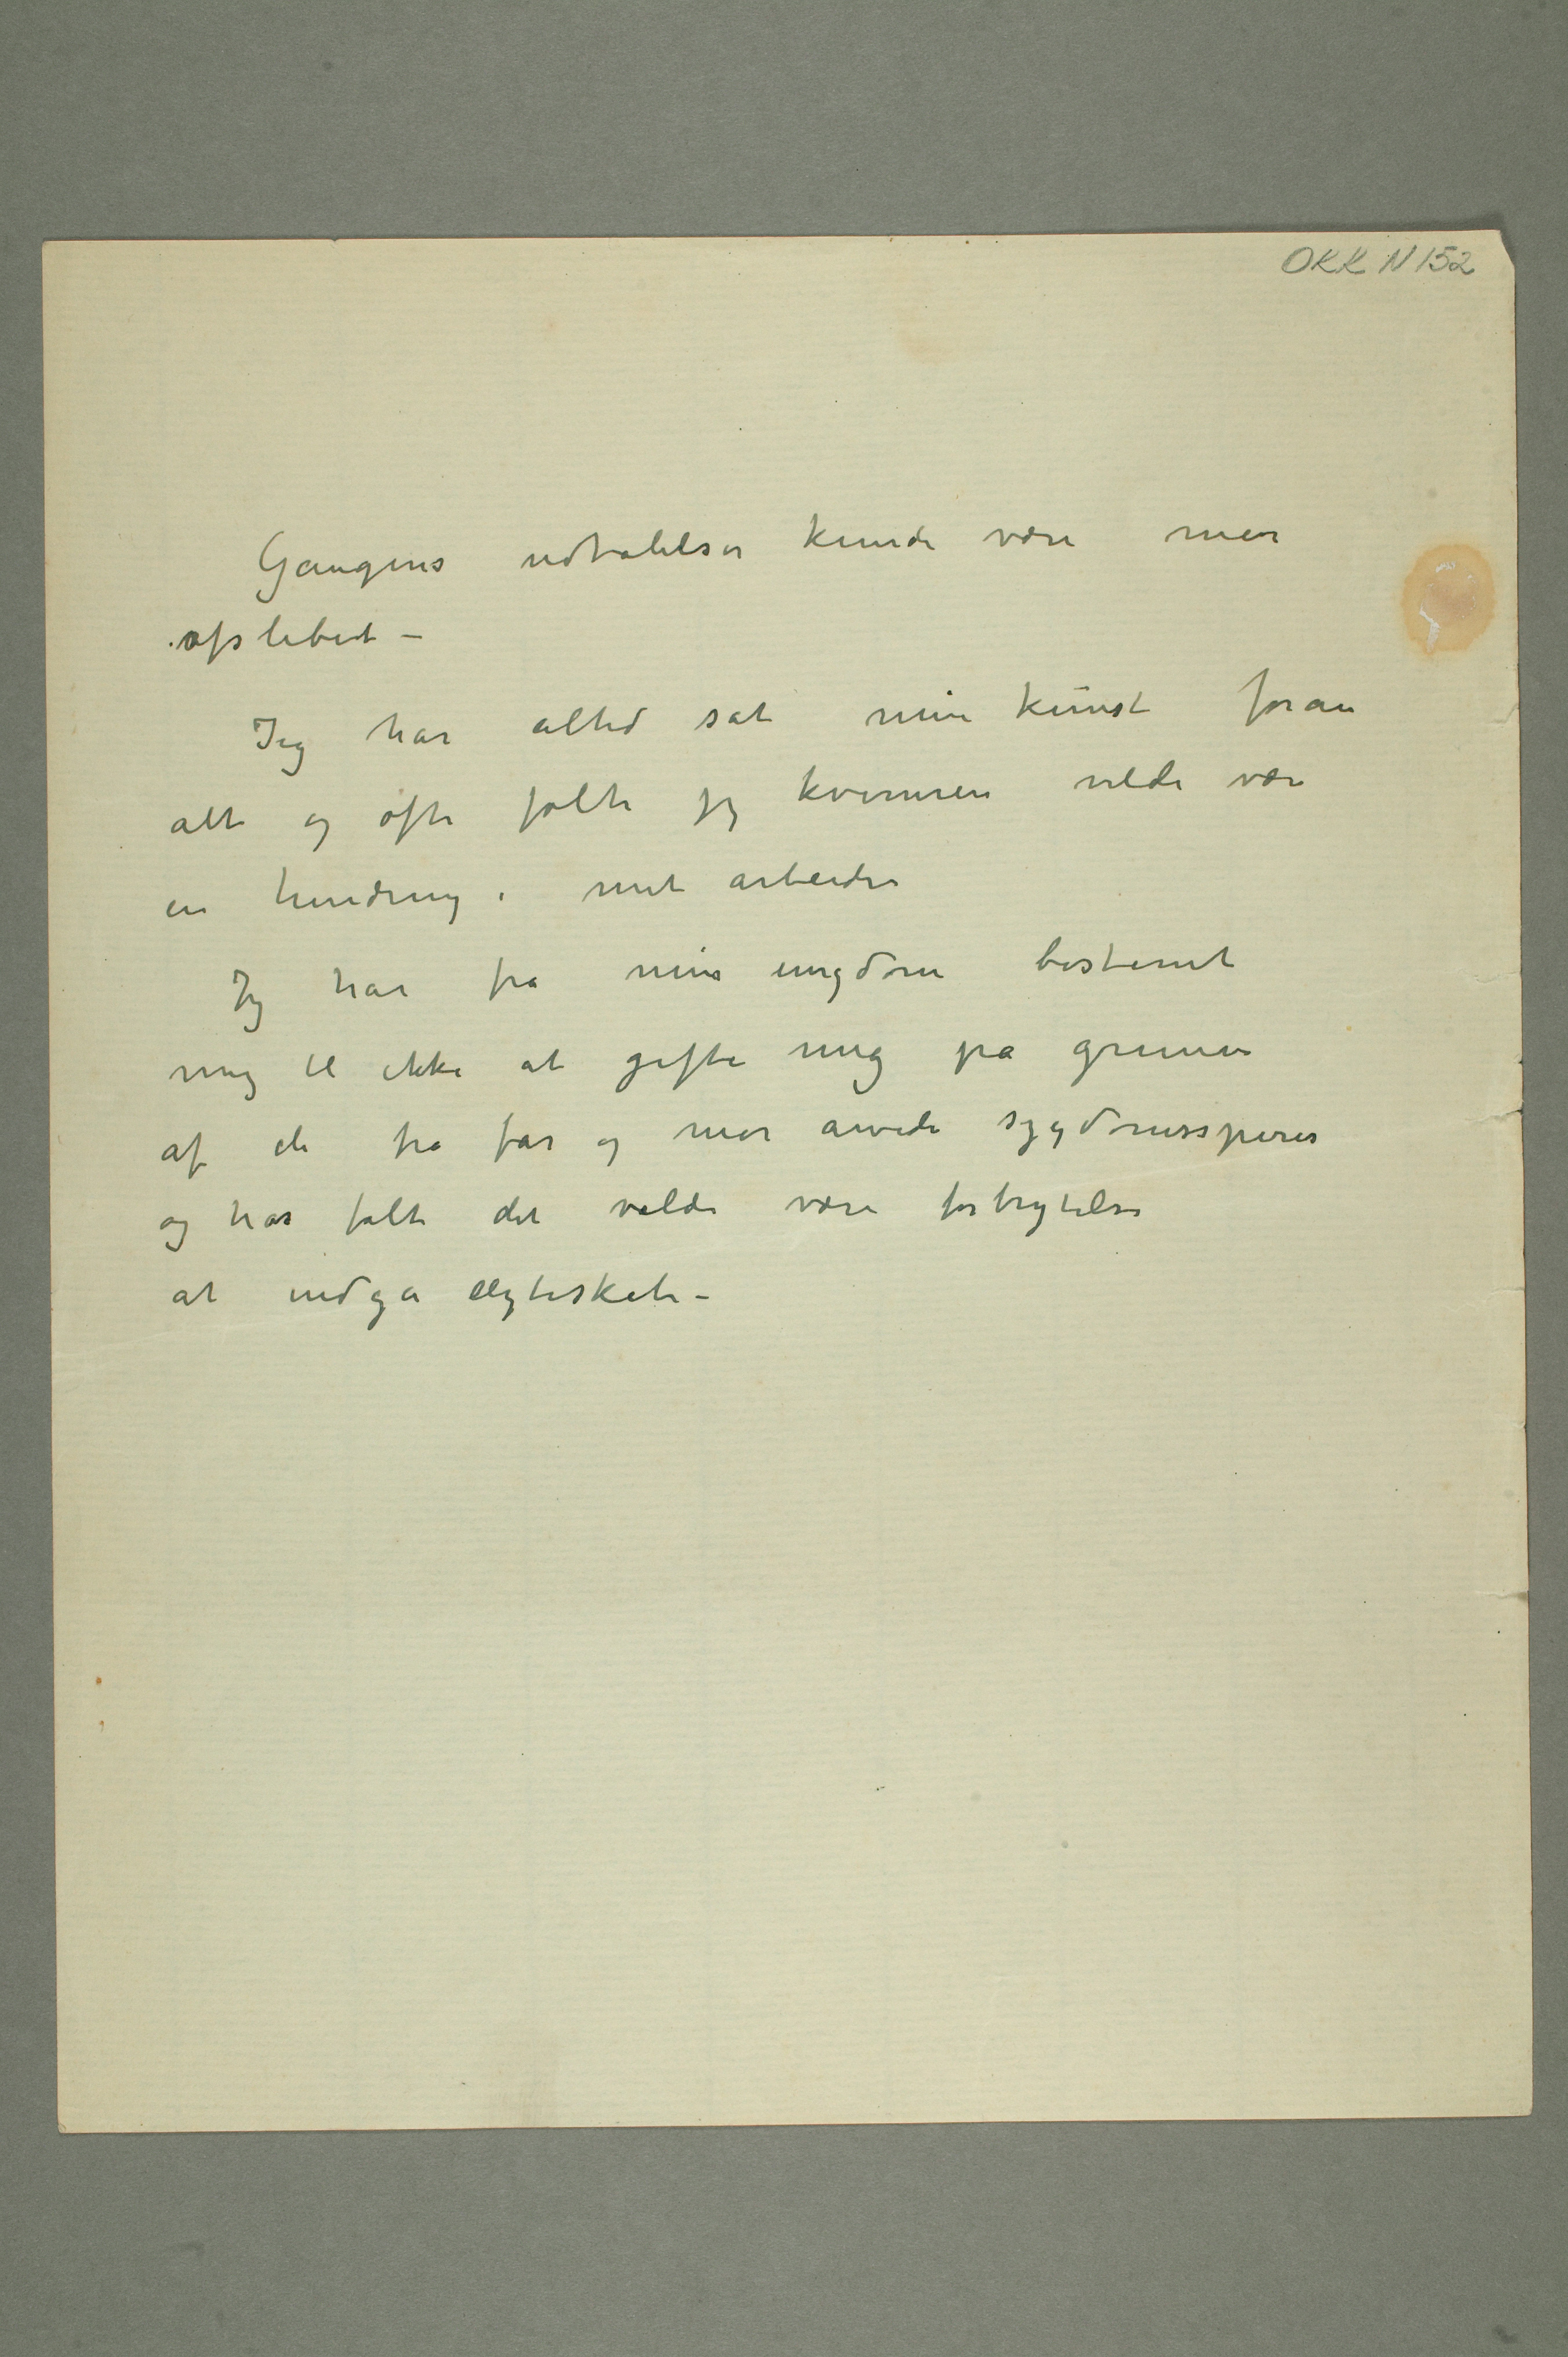 OKK N 152
Gaugins udtalelser kunde være mer
afslebet –
Jeg har altid sat min kunst foran
alt og ofte følte jeg kvinnen vilde være
en hindring i mit arbeide
Jeg har fra min ungdom bestemt
mig til ikke at gifte mig på grunn
af de fra far og mor arvede sygdomsspirer
og har følt det vilde være forbrytelse
at indgå ægteskab –